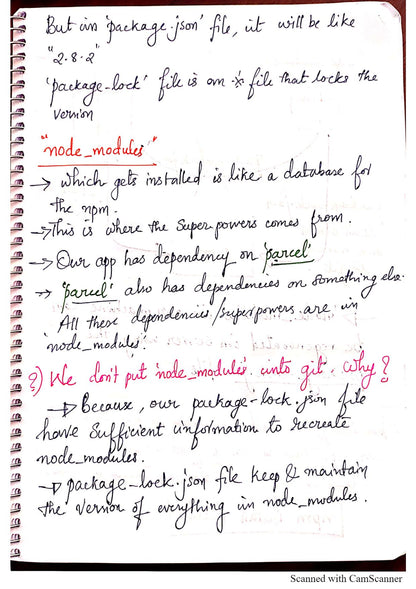 But in 'package.json' file, it will be like
"2.8.2"
'package-lock' file is an file that locks the
version
"node_modules"
→ which gets installed is like a database for
the npm.
→ This is where the super powers comes from.
→ Our app has dependency on 'parcel'
→ 'parcel' also has dependencies on something else.
All these dependencies/superpowers are in
'node_modules'.
?) We don't put 'node_modules' into git. Why?
→ Because, our package-lock.json file
have sufficient information to recreate
node_modules.
→ package-lock.json file keep & maintain
the version of everything in node_modules.
Scanned with CamScanner